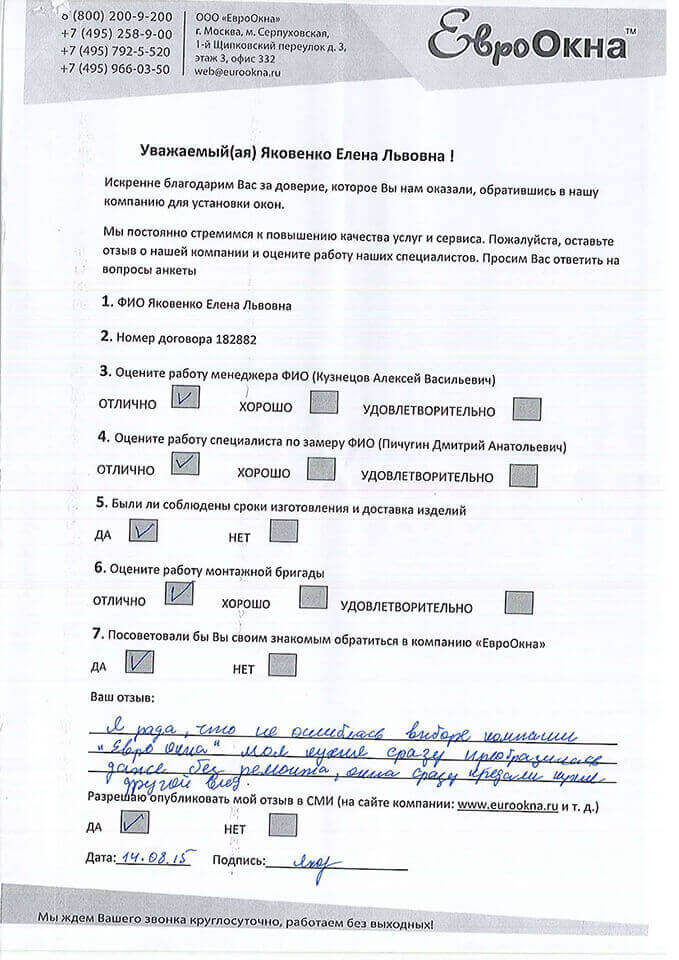 8 (800) 200-9-200
+7 (495) 258-9-00
+7 (495) 792-5-520
+7 (495) 966-03-50
ООО «ЕвроОкна»
г. Москва, м. Серпуховская,
1-й Щипковский переулок д. 3,
этаж 3, офис 332
web@eurookna.ru
ЕвроОкна™
Уважаемый(ая) Яковенко Елена Львовна !
Искренне благодарим Вас за доверие, которое Вы нам оказали, обратившись в нашу
компанию для установки окон.
Мы постоянно стремимся к повышению качества услуг и сервиса. Пожалуйста, оставьте
отзыв о нашей компании и оцените работу наших специалистов. Просим Вас ответить на
вопросы анкеты
1. ФИО Яковенко Елена Львовна
2. Номер договора 182882
3. Оцените работу менеджера ФИО (Кузнецов Алексей Васильевич)
ОТЛИЧНО ХОРОШО УДОВЛЕТВОРИТЕЛЬНО
4. Оцените работу специалиста по замеру ФИО (Пичугин Дмитрий Анатольевич)
ОТЛИЧНО ХОРОШО УДОВЛЕТВОРИТЕЛЬНО
5. Были ли соблюдены сроки изготовления и доставка изделий
ДА НЕТ
6. Оцените работу монтажной бригады
ОТЛИЧНО ХОРОШО УДОВЛЕТВОРИТЕЛЬНО
7. Посоветовали бы Вы своим знакомым обратиться в компанию «ЕвроОкна»
ДА НЕТ
Ваш отзыв:
Я рада, что не ошиблась выборе компании
"Евро окна" моя кухня сразу преобразилась
даже без ремонта, окна сразу придали кухне
другой вид.
Разрешаю опубликовать мой отзыв в СМИ (на сайте компании: www.eurookna.ru и т. д.)
ДА НЕТ
Дата: 14.08.15 Подпись:
Мы ждем Вашего звонка круглосуточно, работаем без выходных!